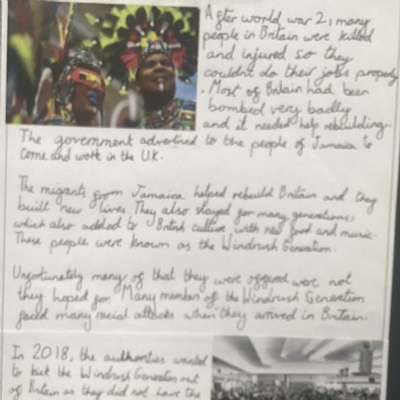 After world war 2, many
people in Britain were killed
and injured so they
couldn't do their jobs properly
. Most of Britain had been
bombed very badly
and it needed help rebuilding.
The government advertised to the people of Jamaica to
come and work in the U.K.
The migrants from Jamaica helped rebuild Britain and they
built new lives. They also stayed for many generations,
which also added to British culture with new food and music.
These people were known as the Windrush Generation.
Unfortunately many of that they were offered were not
they hoped for. Many member of the Windrush Generation
faced many racial attacks when they arrived in Britain.
In 2018, the authorities wanted
to kick the Windrush Generation out
of Britain as they did not have the